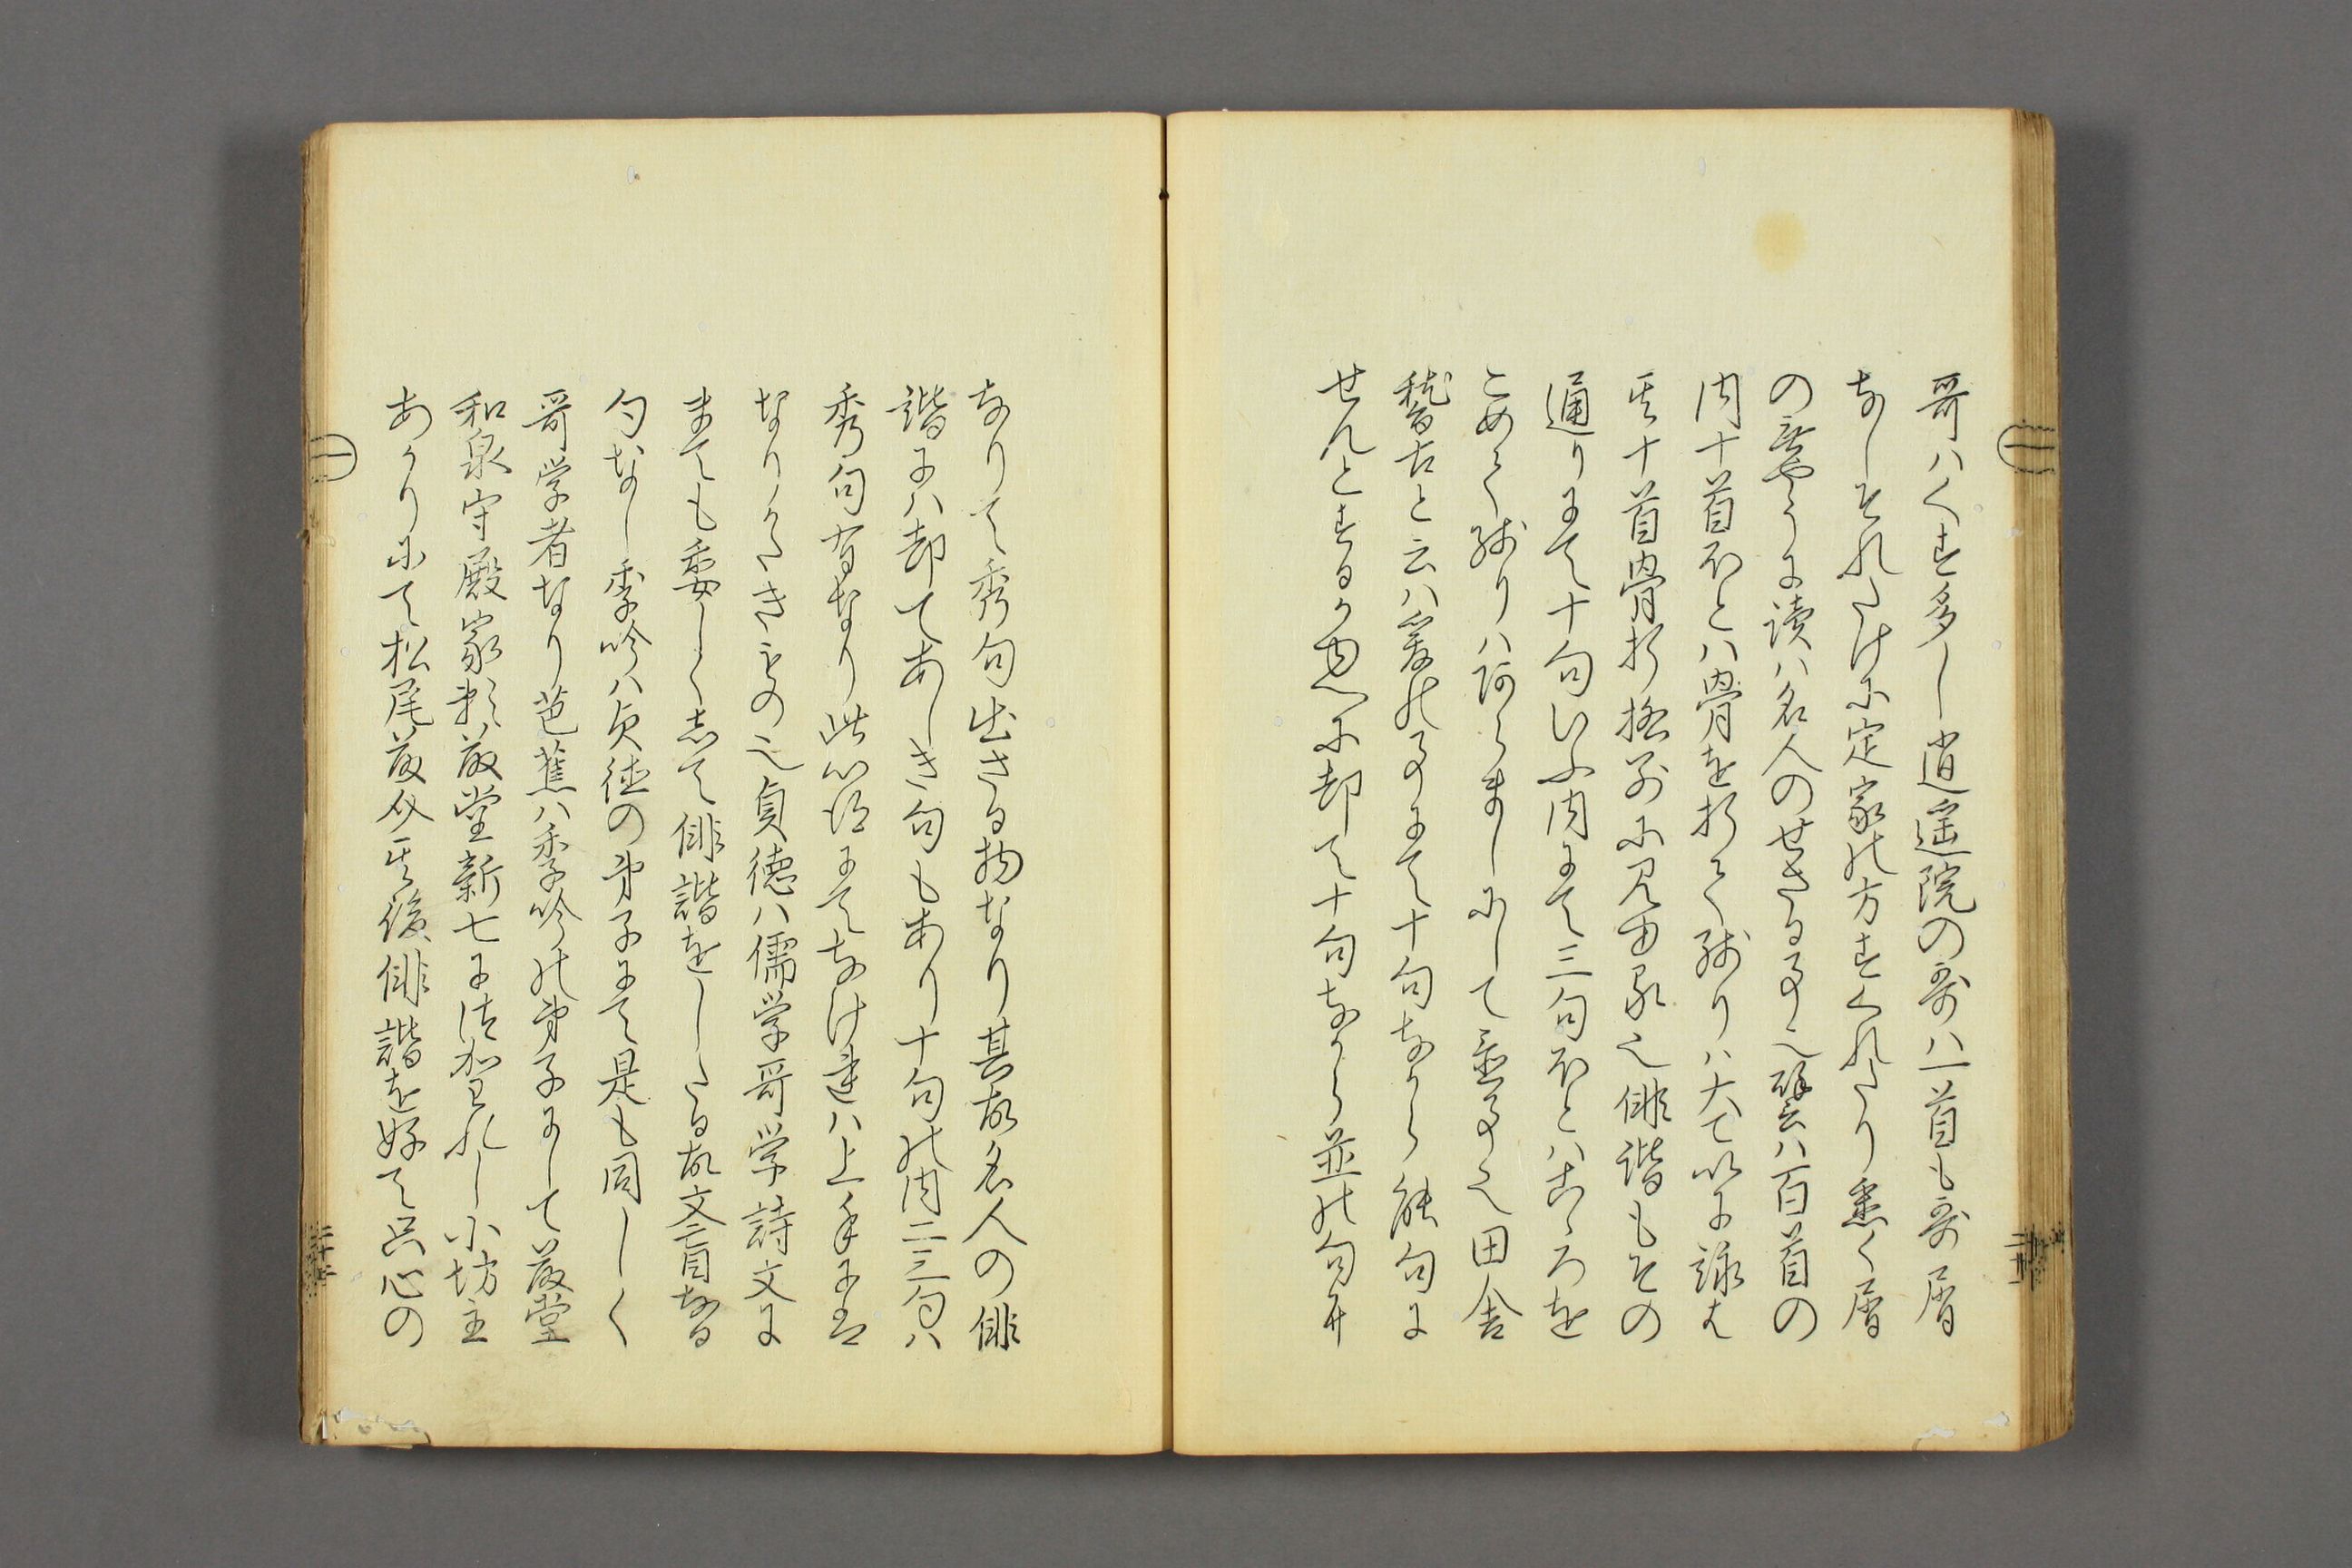 哥ハくす多し逍遥院の哥ハ一首も哥屑
なしそれたけに定家の方すくれたり悪く屑
のなきやうに読ハ名人のせさる事也譬ハ百首の
内十首ほとハ骨を折て残りハ大てい に詠は
其十首骨折格別に見由る也俳諧もその
通りにて十句いふ内にて三句ほとハこゝろを
こめて残りハあらましにして 事也田舎
稽古と云ハ爰の事にて十句なから能句に
せんとするか故に却て十句なから並の句
なりて秀句出さる物なり其故名人の俳
諧にハ却てあしき句もあり十句の内二三句ハ
秀句有なり此心得にてなけ連ハ上手には
なりかたきもの也貞徳ハ儒学哥学詩文に
まても委しく志て俳諧をしたる故文盲なる
句なし季吟ハ貞徳の弟子にて是も同しく
哥学者なり芭蕉ハ季吟の弟子にして藤堂
和泉守殿家頼藤堂新七に 小坊主
あかりにて松尾藤 其後俳諧を好て只心の
一
一
二十一
二十二